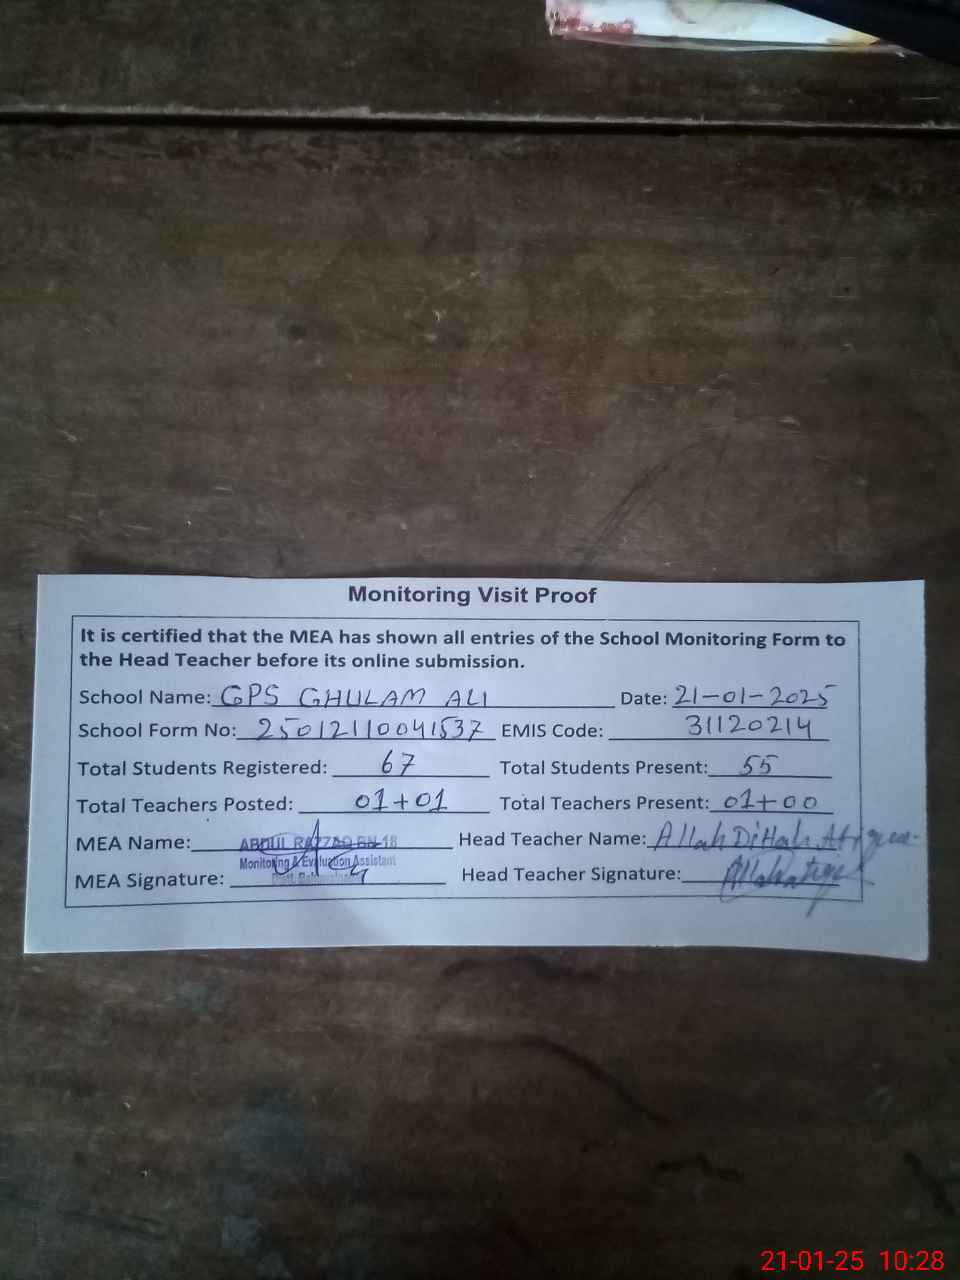 Monitoring Visit Proof
It is certified that the MEA has shown all entries of the School Monitoring Form to
the Head Teacher before its online submission.
School Name: GPS GHULAM ALI Date: 21-01-2025
School Form No: 25012110041537 EMIS Code: 31120214
Total Students Registered: 67 Total Students Present: 55
Total Teachers Posted: 01+01 Total Teachers Present: 01+00
MEA Name: ABDUL RAZZAQ BN-18 Head Teacher Name: Allah Dittah
Monitoring & Evaluation Assistant
MEA Signature: Head Teacher Signature:
21-01-25 10:28